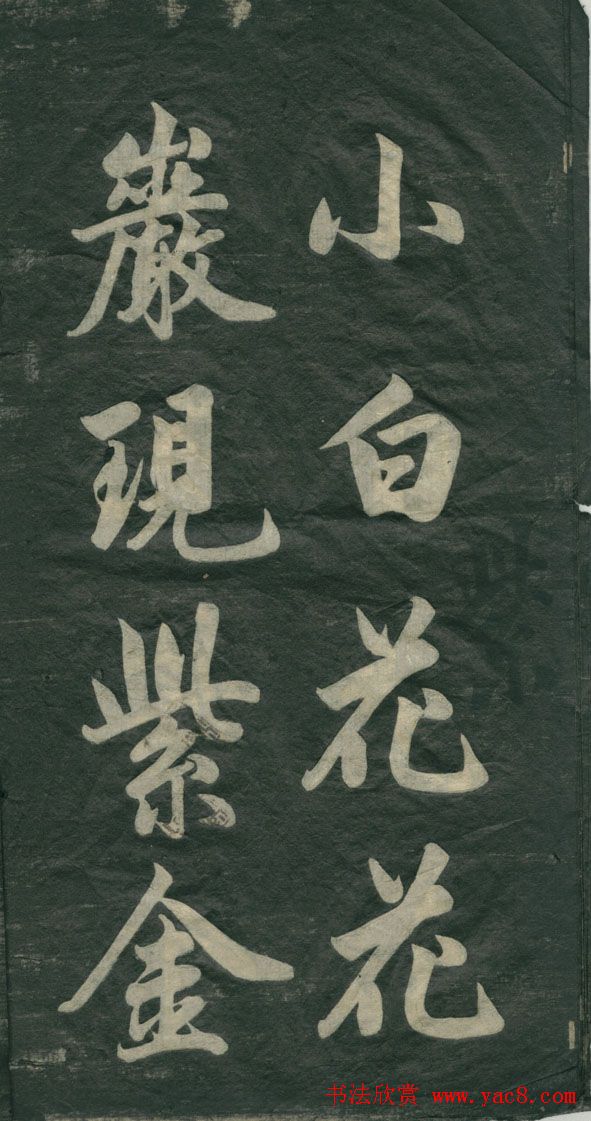 小白花花
巖現紫金
书法欣赏 www.yac8.com